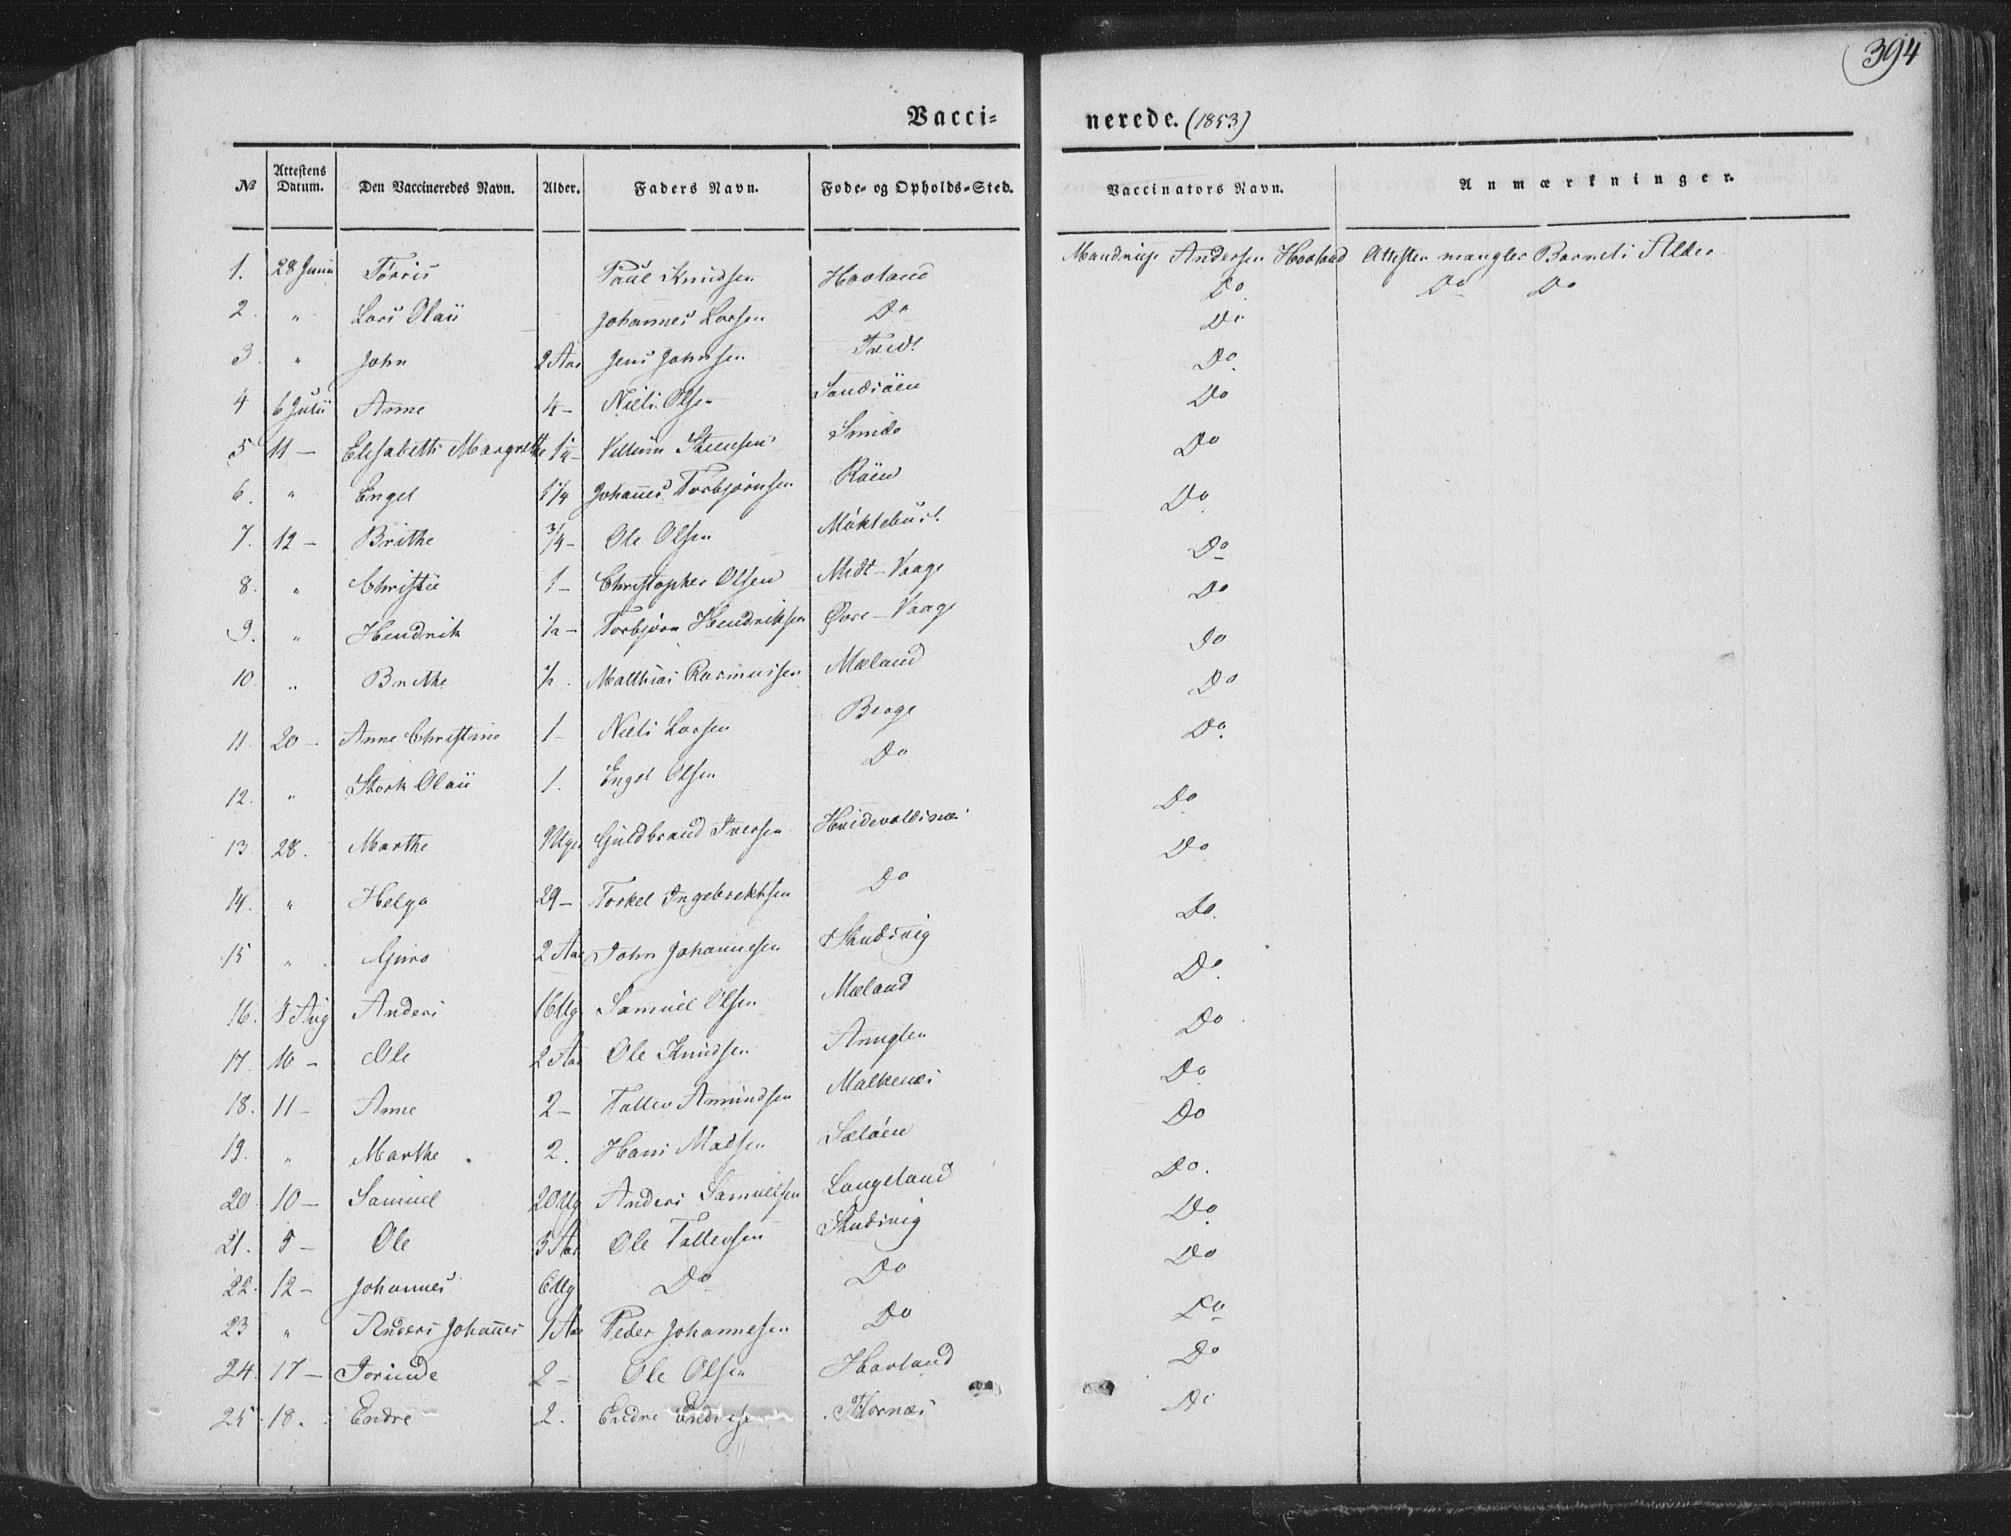 394
Vacci-
nerede. (1853)
No Attestens Datum. Den Vaccineredes Navn. Alder. Faders Navn. Føde- og Opholds-Sted. Vaccinators Navn. Anmærkninger.
1. 28 Junii Tørris Paul Knudsen Haaland Andersen Haaland Attesten mangler Barnets Alder
2. " Lars Olaii Johannes Larsen Do Do Do Do
3. " John 2 Aar Jens Johnsen Tvedt Do
4 6 Julii Anne 4 - Niels Olsen Sandsöen Do
5 11 - Elisabeth Margrethe Villum Steensen Do
6. " Engel 1 1/4 Johannes Torbjørnsen Röen Do
7. 12 - Brithe 3/4 - Ole Olsen Møklebust. Do
8. " Christie 1 - Christopher Olsen Midt-Vaage Do
9. " Hendrik 1/2 - Torbjørn Hendriksen Øvre-Vaage Do
10. " Brithe 1/2. Matthias Rasmussen Mæland Do
11. 20 - Anne Christine 1 - Niels Larsen Berge Do
12. " Stork Olaii 1. Engel Olsen Do Do.
13. 28. Marthe 9 Uger Guldbrand Iversen Do
14. " Helga 29 - Torkel Ingebrektsen Do Do
15 " Guro 2 Aar John Johannesen Skudsvig Do.
16. 8 Aug Anders 16 Ug Samuel Olsen Mæland Do.
17. 10 - Ole 2 Aar Ole Knudsen Anuglen Do
18. 11 - Anne 2 - Tallev Amundsen Malkenæs Do
19. " Marthe 2. Hans Madsen Sælöen Do
20. 10 - Samuel 20 Ug Anders Samuelsen Langeland Do.
21. 5 - Ole 5 Aar Ole Tallevsen Skudsvig Do
22. 12 - Johannes 6 Ug Do Do Do
23 " Anders Johannes 1 Aar Peder Johannesen Do Do
24. 17 - Jorunde 2 - Ole Olsen Haaland Do
25. 18. Endre 2. Endre Endresen Hornæs Do